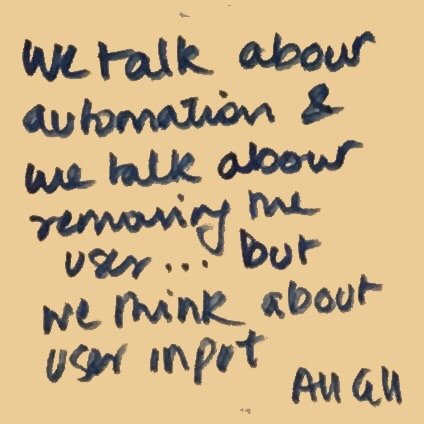 we talk about
automation &
we talk about
removing the
user... but
we think about
user input
All All